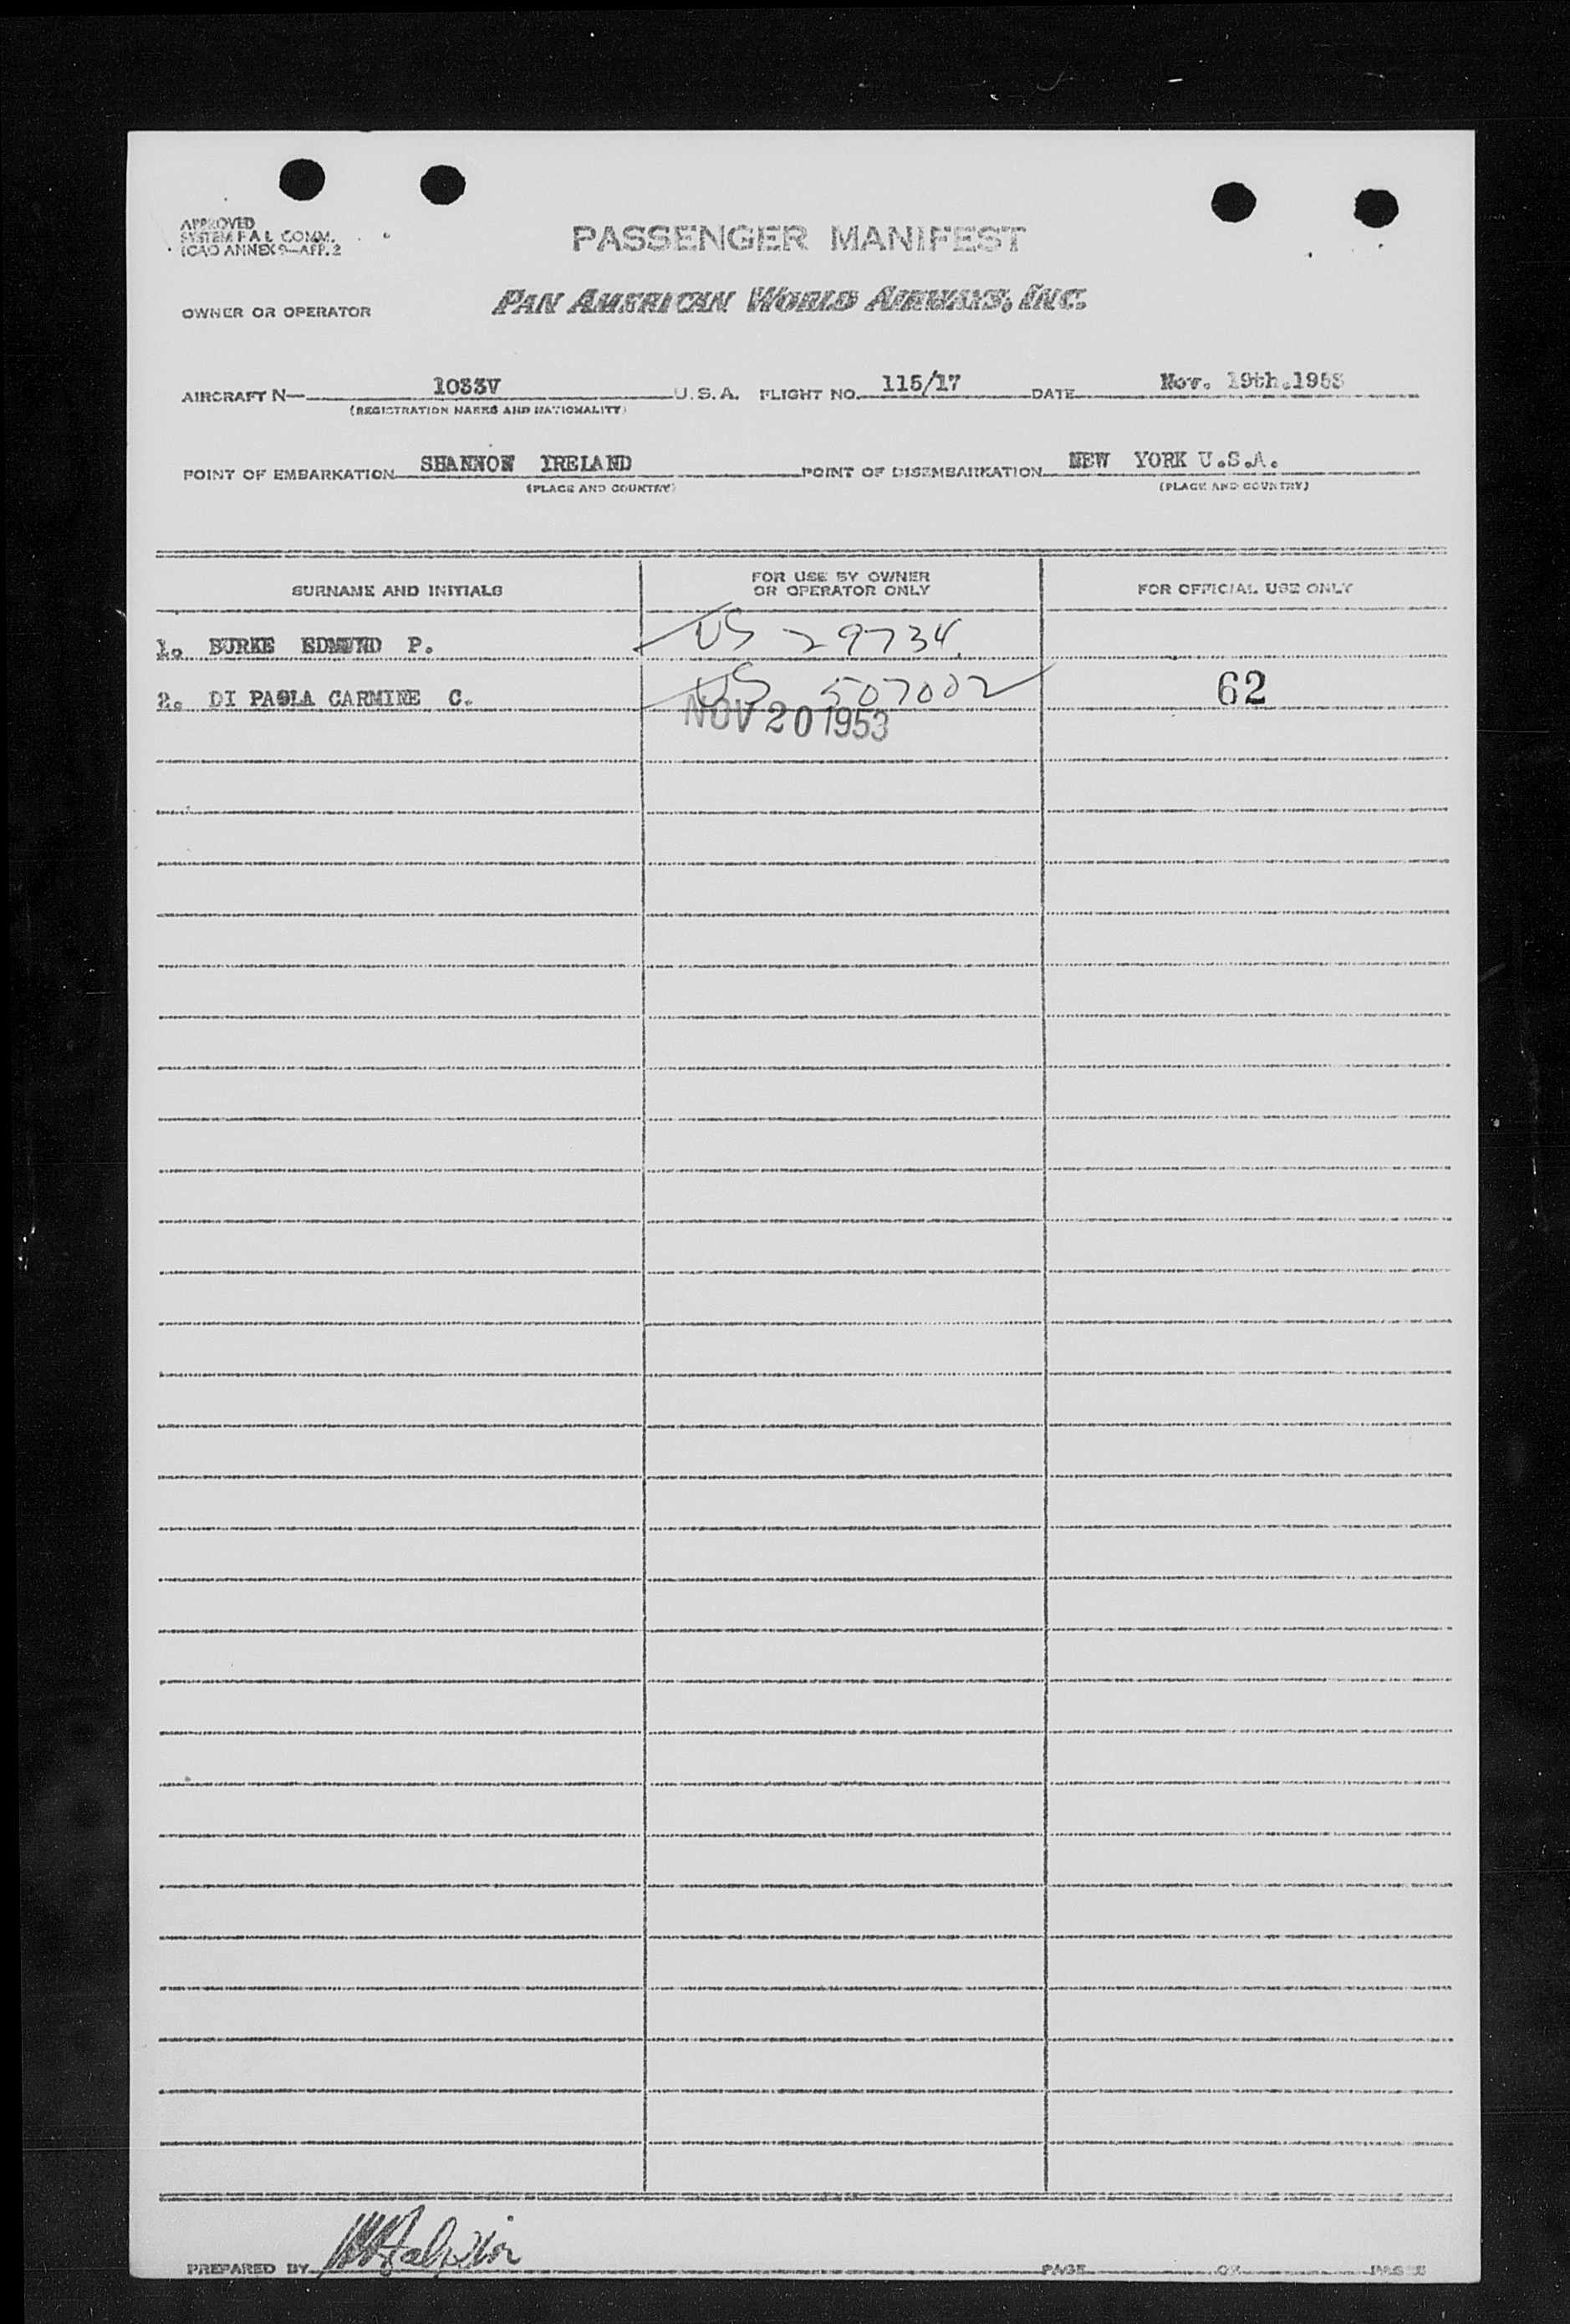 APPROVED
SYSTEM F.A.L. COMM.
ICAO ANNEX 9—APP. 2
PASSENGER MANIFEST
OWNER OR OPERATOR PAN AMERICAN WORLD AIRWAYS, INC.
AIRCRAFT N— 1033V U.S.A. FLIGHT NO. 115/17 DATE Nov. 19th.1953
(REGISTRATION MARKS AND NATIONALITY)
POINT OF EMBARKATION SHANNON IRELAND POINT OF DISEMBARKATION NEW YORK U.S.A.
(PLACE AND COUNTRY) (PLACE AND COUNTRY)
SURNAME AND INITIALS FOR USE BY OWNER OR OPERATOR ONLY FOR OFFICIAL USE ONLY
1. BURKE EDMUND P. US 29734
2. DI PAOLA CARMINE C. US 507002 62
NOV 20 1953
PREPARED BY PAGE OF PAGES